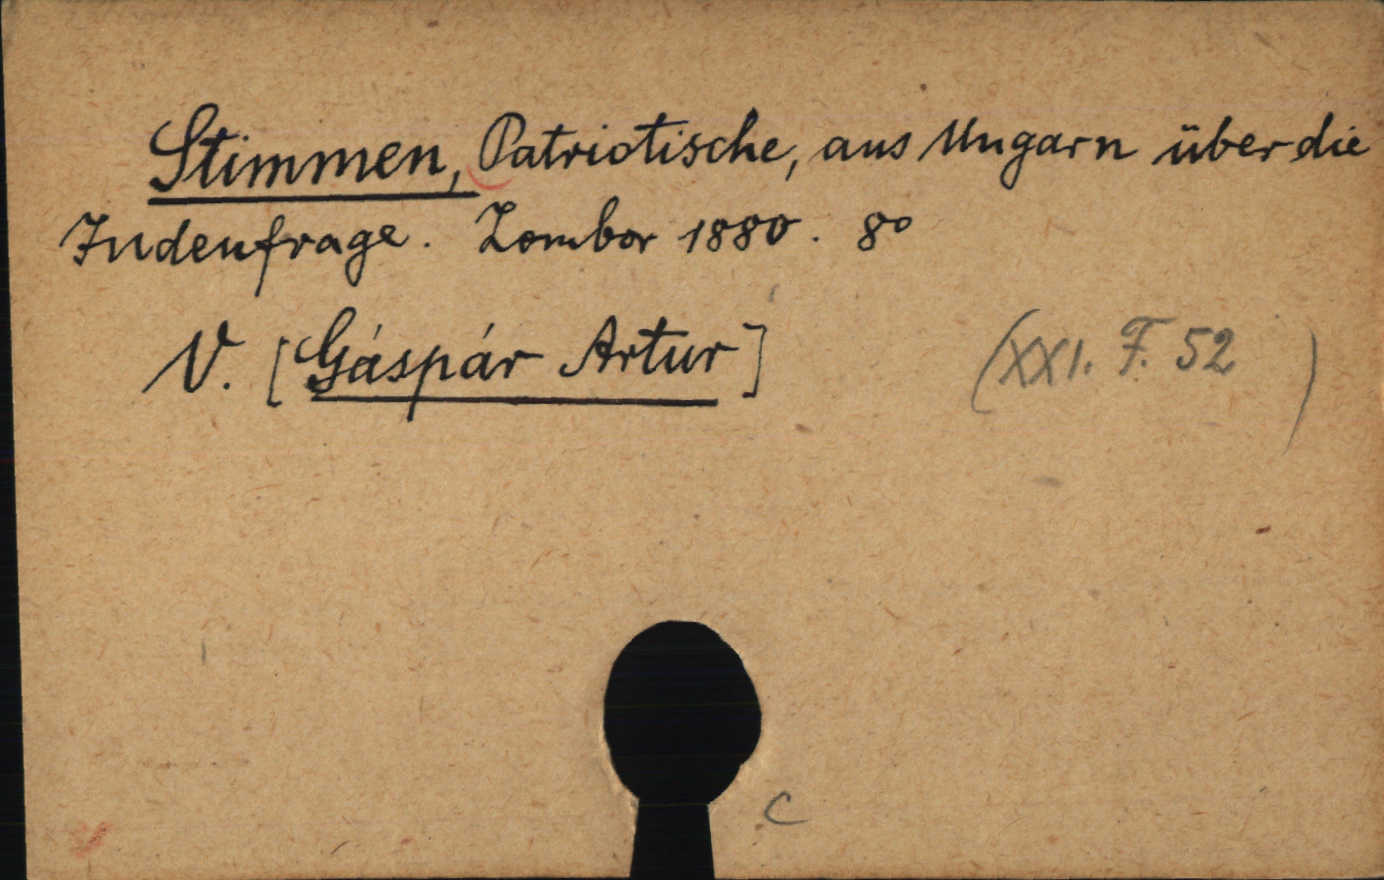 Stimmen, Patriotische, aus Ungarn über die
Judenfrage. Zombor 1880. 8o
V. [Gáspár Artur]
(XXI. F. 52)
C